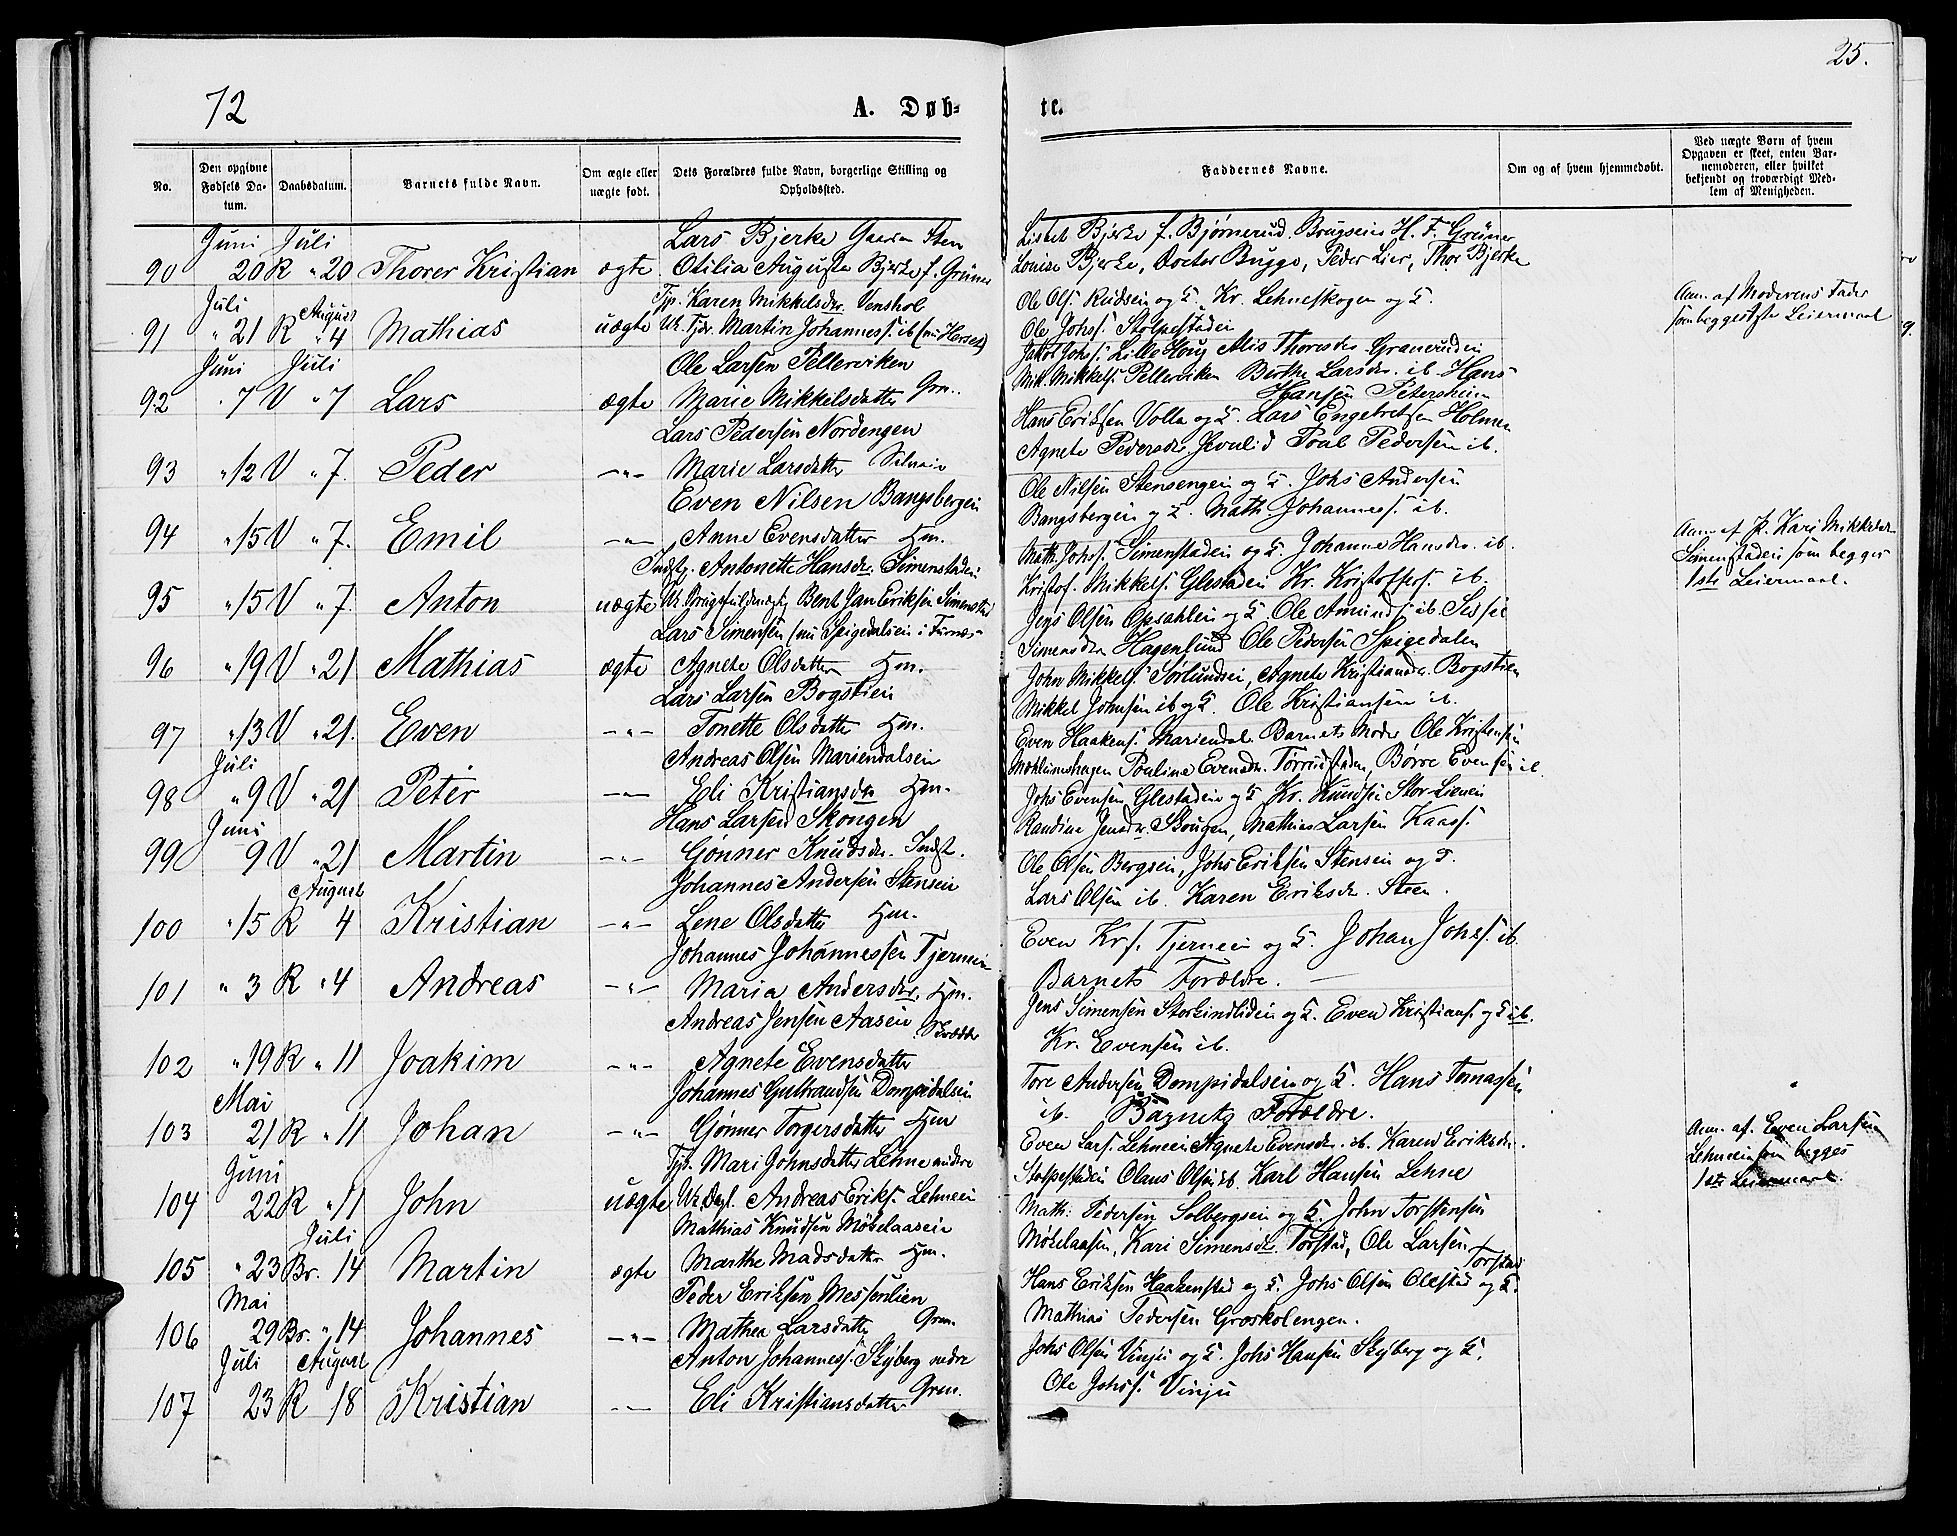 25.
72
A. Døb-
te.
No.
Den opgivne Fødsels Datum.
Daabsdatum.
Barnets fulde Navn.
Om ægte eller uægte født.
Dets Forældres fulde Navn, borgerlige Stilling og Opholdssted.
Faddernes Navne.
Om og af hvem hjemmedøbt.
Ved uægte Børn af hvem Opgaven er skeet, enten Barnemoderen, eller hvilket bekjendt og troværdigt Medlem af Menigheden.
Juni Juli Lars Bjerke Gaarden Sten
90 20 R " 20 Thorer Kristian ægte Otilia Augusta Bjerke f. Grüner
Louise Bjerke, Doctor Bugge, Peder Lier, Thor Bjerke
Juli August Tjp. Karen Mikkelsdr. Venshol
Ole Ols. og K. Kr. Lehneskogen og K.
91 " 21 R " 4 Mathias uægte Uk. Tjdr. Martin Johanness. ib
Ole Johs. Stolpestadeie
Anm. af Moderens Fader
som begges 1ste Leiermaal
Juni Juli Ole Larsen Pellerviken
92 " 7 V " 7 Lars ægte Marie Mikkelsdatter Grn.
Mik. Mikkels. Pellerviken Berthe Larsdr. ib. Hans
Hansen Petersheim
Lars Pedersen Nordengen
Hans Eriksen Volla og K. Lars Engebretsen Holmen
93 " 12 V " 7. Peder -"- Marie Larsdatter
Agnete Pedersdr. Poul Pedersen ib.
Even Nilsen Bangsbergeie
Ole Nilsen Stensengen og K. Johs Andersen
94 " 15 V " 7. Emil -"- Anne Evensdatter Hm.
Bangsbergeie og K. Math. Johanness. ib.
Indst. Antonette Hansdr. Simenstadeie
Math. Johs. Simenstadeie og K. Johanne Hansdr. ib.
95 " 15 V " 7. Anton uægte Uk. Bent Jan Eriksen Simenstad
Kristof. Mikkels. Glestadeie Kr. Kristoffers. ib.
Anm. af Kari Mikkelsdr.
Simenstadeie som begges
1ste Leiermaal.
Lars Simensen (nu Spigedalseie i Furnæs
Jens Olsen Opsahleie og K. Ole Amunds. ib. Sissel
96 " 19 V " 21 Mathias ægte Agnete Olsdatter Hm.
Simensdr. Hagenlund Ole Pedersen Spigedalen
Lars Larsen Bogstieie
John Mikkels. Sørlundeie, Agnete Kristiansdr. Bogstien
97 " 13 V " 21. Even -"- Tonette Olsdatter Hm.
Mikkel Johnsen ib og K. Ole Kristiansen ib.
Juli Andreas Olsen Mariendalseie
Even Haakens. Mariendal Barnets Moder Ole Kristensen
98 " 9 V " 21 Peter -"- Eli Kristiansdr. Hm.
Pouline Evensdr. Torrudstaden, Børre Evensen ib.
Juni Hans Larsen Skougen
Johs Evensen Glestadeie og K. Kr. Knudsen
99 9 V " 21 Martin -"- Gønner Knudsdr. Indst.
Randine Jensdr. Skougen, Mathias Larsen
August Johannes Andersen Stenseie
Ole Olsen Bergseie, Johs Eriksen Stenseie og K.
100 " 15 R 4 Kristian -"- Lene Olsdatter Hm.
Lars Olsen ib. Karen Eriksdr. Steen.
Johannes Johannessen Tjerneie
Even Krs. Tjerneie og K. Johan Johs. ib.
101 " 3 R " 4 Andreas -"- Maria Andersdr. Hm.
Barnets Forældre.
Andreas Jensen Aaseie Skrædder
Jens Simensen og K. Even Kristians. og K ib.
102 " 19 R " 11 Joakim -"- Agnete Evensdatter
Kr. Evensen ib.
Mai Johannes Gulbrandsen Dompidalseie
Tore Andersen Dompidalseie og K. Hans Tomassen
103 21 R " 11 Johan -"- Gønner Torgersdatter Hm
ib. Barnets Forældre.
Juni Tjp. Mari Johnsdatter Lehne nedre
Even Lars. Lehneeie Agnete Evensdr. ib. Karen Eriksdr.
104 22 R " 11 John uægte Uk. Dagl. Andreas Eriks. Lehneeie
Stolpestadeie Olaus Olsen ib. Karl Hansen Lehne
Anm. af Even Larsen
Lehneeie som begges
1ste Leiermaal.
Juli Mathias Knudsen Møbelaaseie
Math: Pedersen Solbergseie og K. John Torstensen
105 " 23 Br. 14 Martin ægte Marthe Madsdatter Hm.
Møbelaasen, Kari Simensdr. Torstad, Ole Larsen Torstad
Mai Peder Eriksen Messenlien
Hans Eriksen Haakenstad og K. Johs Olsen Olestad og K.
106 29 Br. " 14 Johannes -"- Mathea Larsdatter Grm.
Mathias Pedersen Groskolengen.
Juli August Anton Johanness. Skyberg nedre
Johs Olsen Vinju og K. Johs Hansen Skyberg og K.
107 23 R 18 Kristian -"- Eli Kristiansdatter Grm.
Ole Johs. Vinju